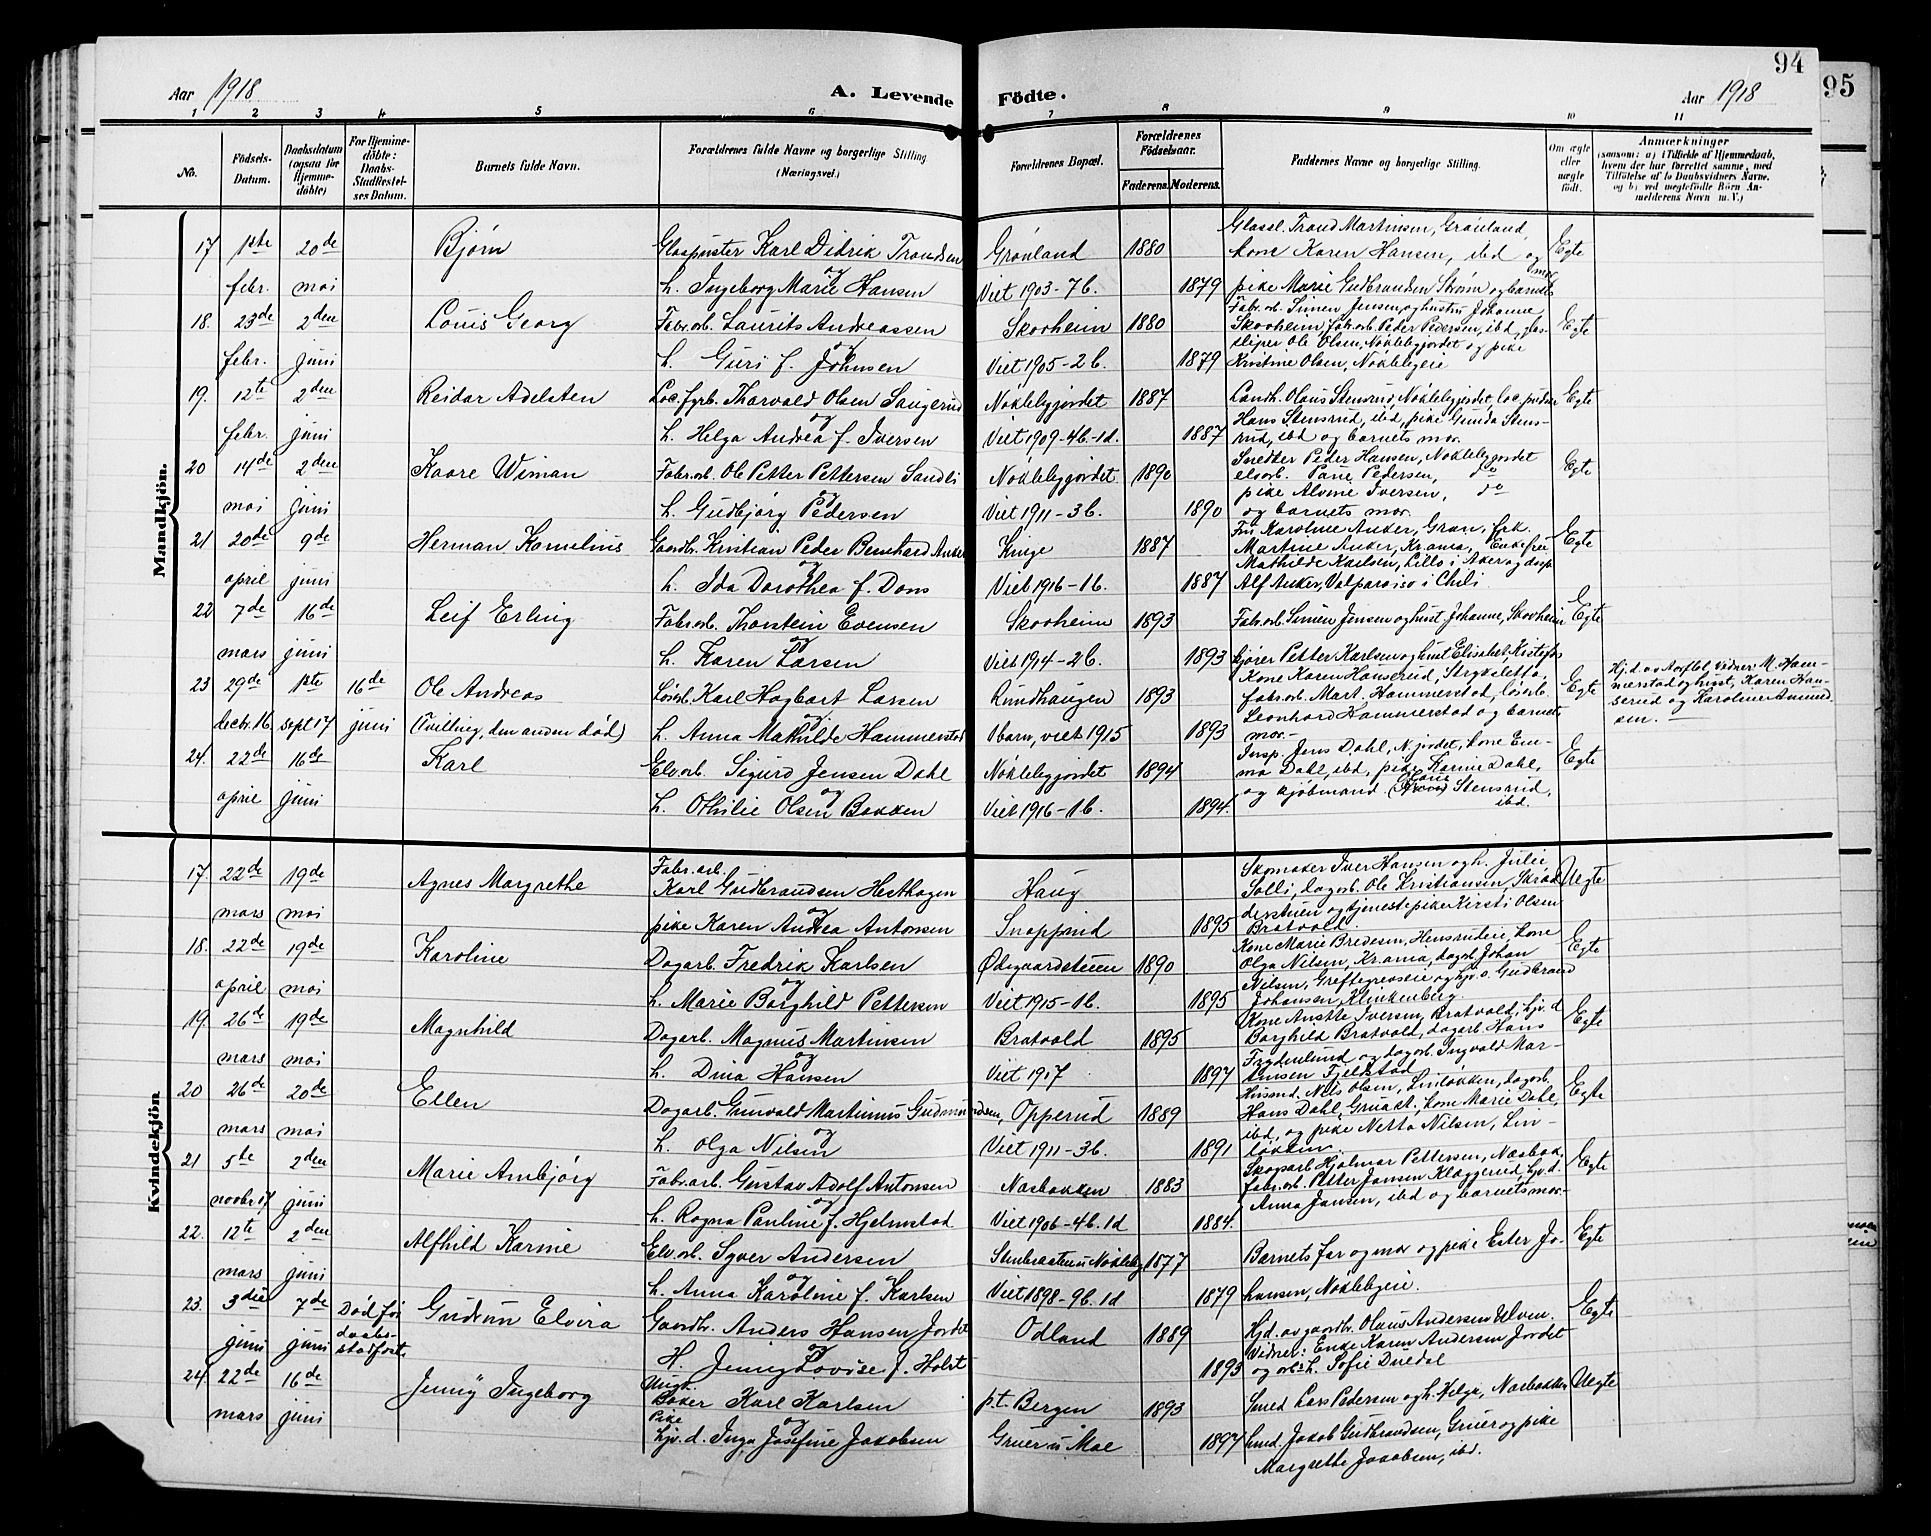 94
95
Aar 1918
A. Levende Födte.
Aar 1918
1 2 3 4 5 6 7 8 9 10 11
No.
Födsels-Datum.
Daabsdatum (ogsaa for Hjemmedöbte)
For Hjemmedöbte: Daabs-Stadfestelses Datum.
Barnets fulde Navn.
Forældrenes fulde Navne og borgerlige Stilling (Næringsvei.)
Forældrenes Bopæl.
Forældrenes Födselsaar.
Faderens. Moderens.
Faddernes Navne og borgerlige Stilling.
Om ægte eller uægte födt.
Anmærkninger
(saasom: a) i Tilfælde af Hjemmedaab,
hvem der har forrettet samme, med
Tilföielse af to Daabsvidners Navne.
og b) ved uegtefödte Börn An-
melderens Navn m. V.)
Mandkjön.
17 1ste febr. 20de mai Bjørn
Glaspuster Karl Didrik Trondsen og
h. Ingeborg Marie Hansen
Grønland 1880
Viet 1903-7b. 1879
Glassl. Trond Martinsen, Grønland,
kone Karen Hansen, ibd og
pike Marie Gudbrandsen Strøm og barnets mor
Egte
18. 23de febr. 2den juni Louis Georg
Fabr.arb. Laurits Andreassen og
h. Guri f. Johnsen
Skovheim 1880
Viet 1905-2b. 1879
Fabr.arb. Simen Jensen og hustru Johanne
Skovheim, fabr.arb. Peder Pedersen, ibd, glas-
sliper Ole Olsen, Nøklebygjordet og pike
Kristine Olsen, Nøklebyeie
Egte
19. 12te febr. 2den juni Reidar Adelsten
Loc.fyrb. Thorvald Olsen Saugerud og
h. Helga Andrea f. Iversen
Nøklebygjordet 1887
Viet 1909-4b-1d. 1887
Landh. Olaus Stensrud, Nøklebygjordet, loc.pudser
Hans Stensrud, ibd, pike Gunda Stens-
rud, ibd og barnets mor.
Egte
20 14de mai 2den juni Kaare Wiman
Fabr.arb. Ole Petter Pettersen Sandli og
h. Gudbjørg Pedersen
Nøklebygjordet 1890
Viet 1911-3b. 1890
Snedker Peder Hansen, Nøklebygjordet
elvarb. Paul Pedersen, do
pike Alvine Iversen, do
og barnets mor.
Egte
21 20de april 9de juni Herman Kornelius
Gaardbr. Kristian Peder Bernhard Anker og
h. Ida Dorothea f. Dons
Kinge 1887
Viet 1916-1b. 1887
Fru Karoline Anker, Gran, frk.
Martine Anker, Krania, Enkefru
Mathilde Karlsen, Lillo i Aker og disp.
Alf Anker, Valparaiso i Chili
Egte
22 7de mars 16de juni Leif Erling
Fabr.arb. Thorstein Evensen og
h. Karen Larsen
Skovheim 1893
Viet 1914-2b. 1893
Fabr.arb. Simen Jensen og hust. Johanne, Skovheim
kjører Petter Karlsen og hust Elisabet, Kistefos
Egte
23 29de decbr. 16. 1ste sept 17 16de juni Ole Andreas
(Tvilling, den anden død)
Løsarb. Karl Hagbart Larsen og
h. Anna Mathilde Hammerstad
Rundhaugen 1893
Obarn, viet 1915 1893
Kone Karen Hanserud, Strykeletta,
fabr.arb. Mart. Hammerstad, løsarb.
Leonhard Hammerstad og barnets
mor.-
Egte
Hj.d. av Vidner: M. Ham-
merstad og hust, Karen Han-
serud og Karoline Amund-
sen.
24. 22de april 16de juni Karl
Elv.arb. Sigurd Jensen Dahl og
h. Othilie Olsen Bakken
Nøklebygjordet 1894
Viet 1916-1b. 1894.
Insp. Jens Dahl, N.jordet, kone Em-
ma Dahl, ibd, pike Karine Dahl,
og kjøbmand Stensrud, ibd.
Egte
Kvindekjön
17. 22de mars 19de mai Agnes Margrethe
Fabr.arb.
Karl Gudbrandsen Hesthagen og
pike Karen Andrea Antonsen
Haug
Snapprud 1895
Skomaker Iver Hansen og h. Julie
Solli, dagarb. Ole Kristiansen, Skræd-
derstuen og tjenestepike Kirsti Olsen
Bratvold.
Uegte
18. 22de april 19de mai Karoline
Dagarb. Fredrik Karlsen og
h. Marie Borghild Pettersen
Ødegaardstuen 1890
Viet 1915-1b. 1895
Kone Marie Bredesen, Hensrudeie, kone
Olga Nilsen, Krania, dagarb. Johan
Nilsen, Greftegreveie og hjv.s. Gudbrand
Johansen, Klinkenberg.
Egte
19. 26de mars 19de mai Magnhild
Dagarb. Magnus Martinsen og
h. Dina Hansen
Bratvold 1895
Viet 1917 1897
Kone Anette Iversen, Bratvold, hjv.d
Borghild Bratvold, dagarb. Hans
Frydenlund og dagarb. Ingvald Mar-
tinsen Fjeldstad
Egte
20 26de mars 20de mai Ellen
Dagarb. Gunvald Martinius Gudmundsen, og
h. Olga Nilsen
Opperud 1889
Viet 1911-3b. 1891
Husmd. Nils Olsen, Linløkken, dagarb.
Hans Dahl, Gruadt, kone Marie Dahl,
ibd, og pike Netta Nilsen, Lin-
løkken
Egte
21 5te novbr. 17 2den juni Marie Ambjørg
Fabr.arb. Gustav Adolf Antonsen og
h. Ragna Pauline f. Hjelmstad
Næsbakken 1883
Viet 1906-4b. 1d 1884.
Skogarb. Hjalmar Pettersen, Næsbak.
fabr.arb. Petter Jansen Klaggerud, hjv.d.
Anna Jansen, ibd og barnets mor.-
Egte
22. 12te mars 2den juni Alfhild Karine
Elv.arb. Syver Andersen og
h. Anna Karoline f. Karlsen
Stenbraaten u Nøkleby 1877
Viet 1898-9b. 1d 1879
Barnets far og mor og pike Ester Jo-
hansen, Nøklebyeie.
Egte
23. 3die juni 7de juni Død før daabs-stadfest. Gudrun Elvira
Gaardbr. Anders Hansen Jordet og
H. Jenny Lovise f. Holst
Odland 1889
1893
Hjd. av gaardbr. Olaus Andersen Ulven.
Vidner: Enke Karen Andersen Jordet
og arb.h. Sofie Duedal
Egte
24 22de mars 16de juni Jenny Ingeborg
Ungk.
Baker Karl Karlsen og
Pike
hjv.d. Inga Josefine Jakobsen
p.t. Bergen 1893
Gruer u Moe 1897
Smed Lars Pedersen og h. Helga, Næsbakken
smd. Jakob Gudbrandsen, Gruer og pike
Margrethe Jakobsen, ibd.
Uegte